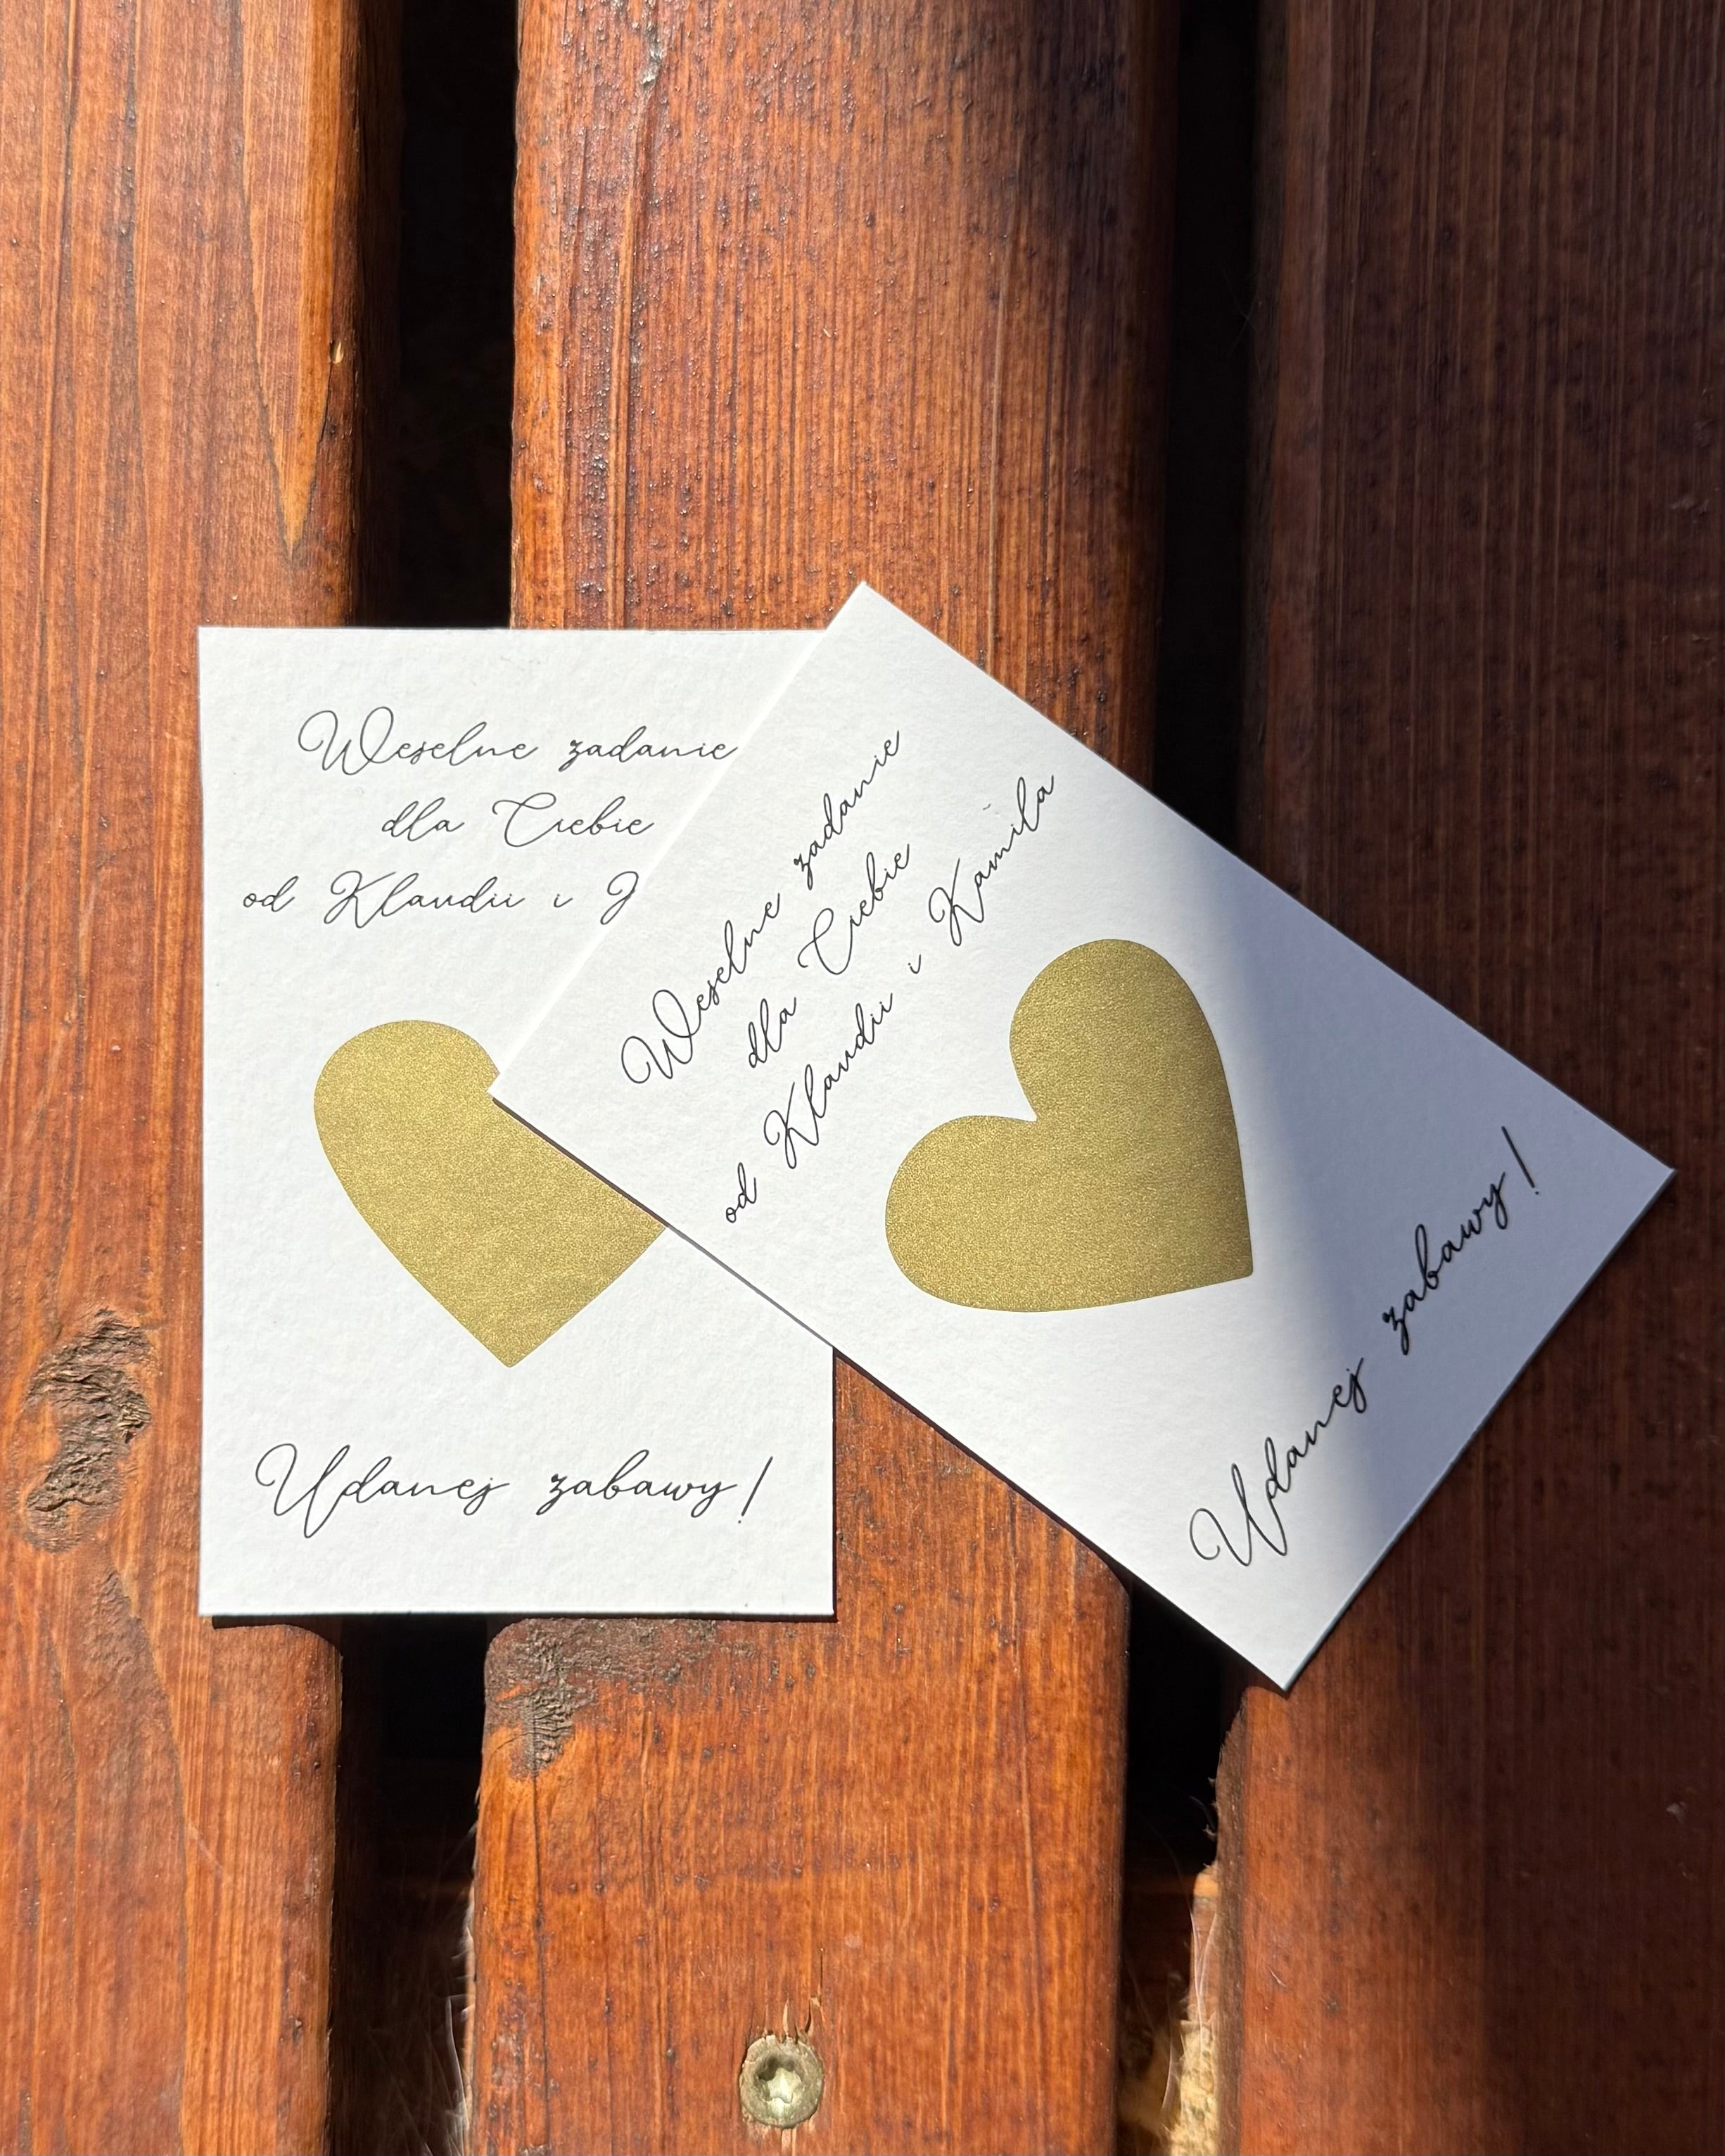 Weselne zadanie
dla Ciebie
od Klaudii i
Udanej zabawy!
Weselne zadanie
dla Ciebie
od Klaudii i Kamila
Udanej zabawy!